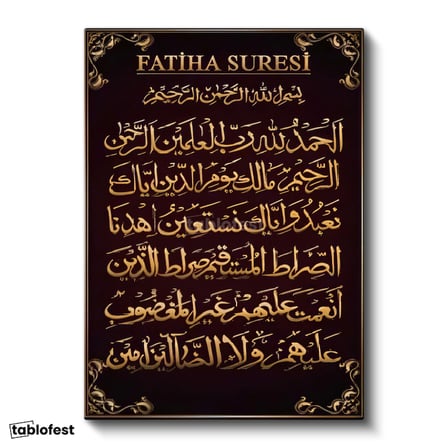 FATİHA SURESİ
بسم الله الرحمن الرحيم
الحمد لله رب العلمين الرحمن
الرحيم مالك يوم الدين اياك
نعبد واياك نستعين اهدنا
الصراط المستقيم صراط الذين
انعمت عليهم غير المغضوب
عليهم ولا الضالين امين
tablofest
tablofest